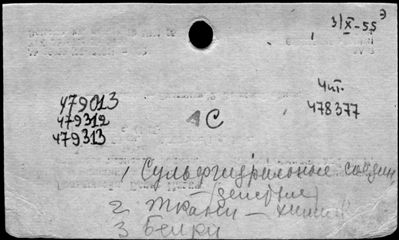 3/X-55
479013
479312
479313
АС
Чит.
478377
1 Сульфгидрильные соедин.
(действие)
2 Ткани - химия
3 Белки